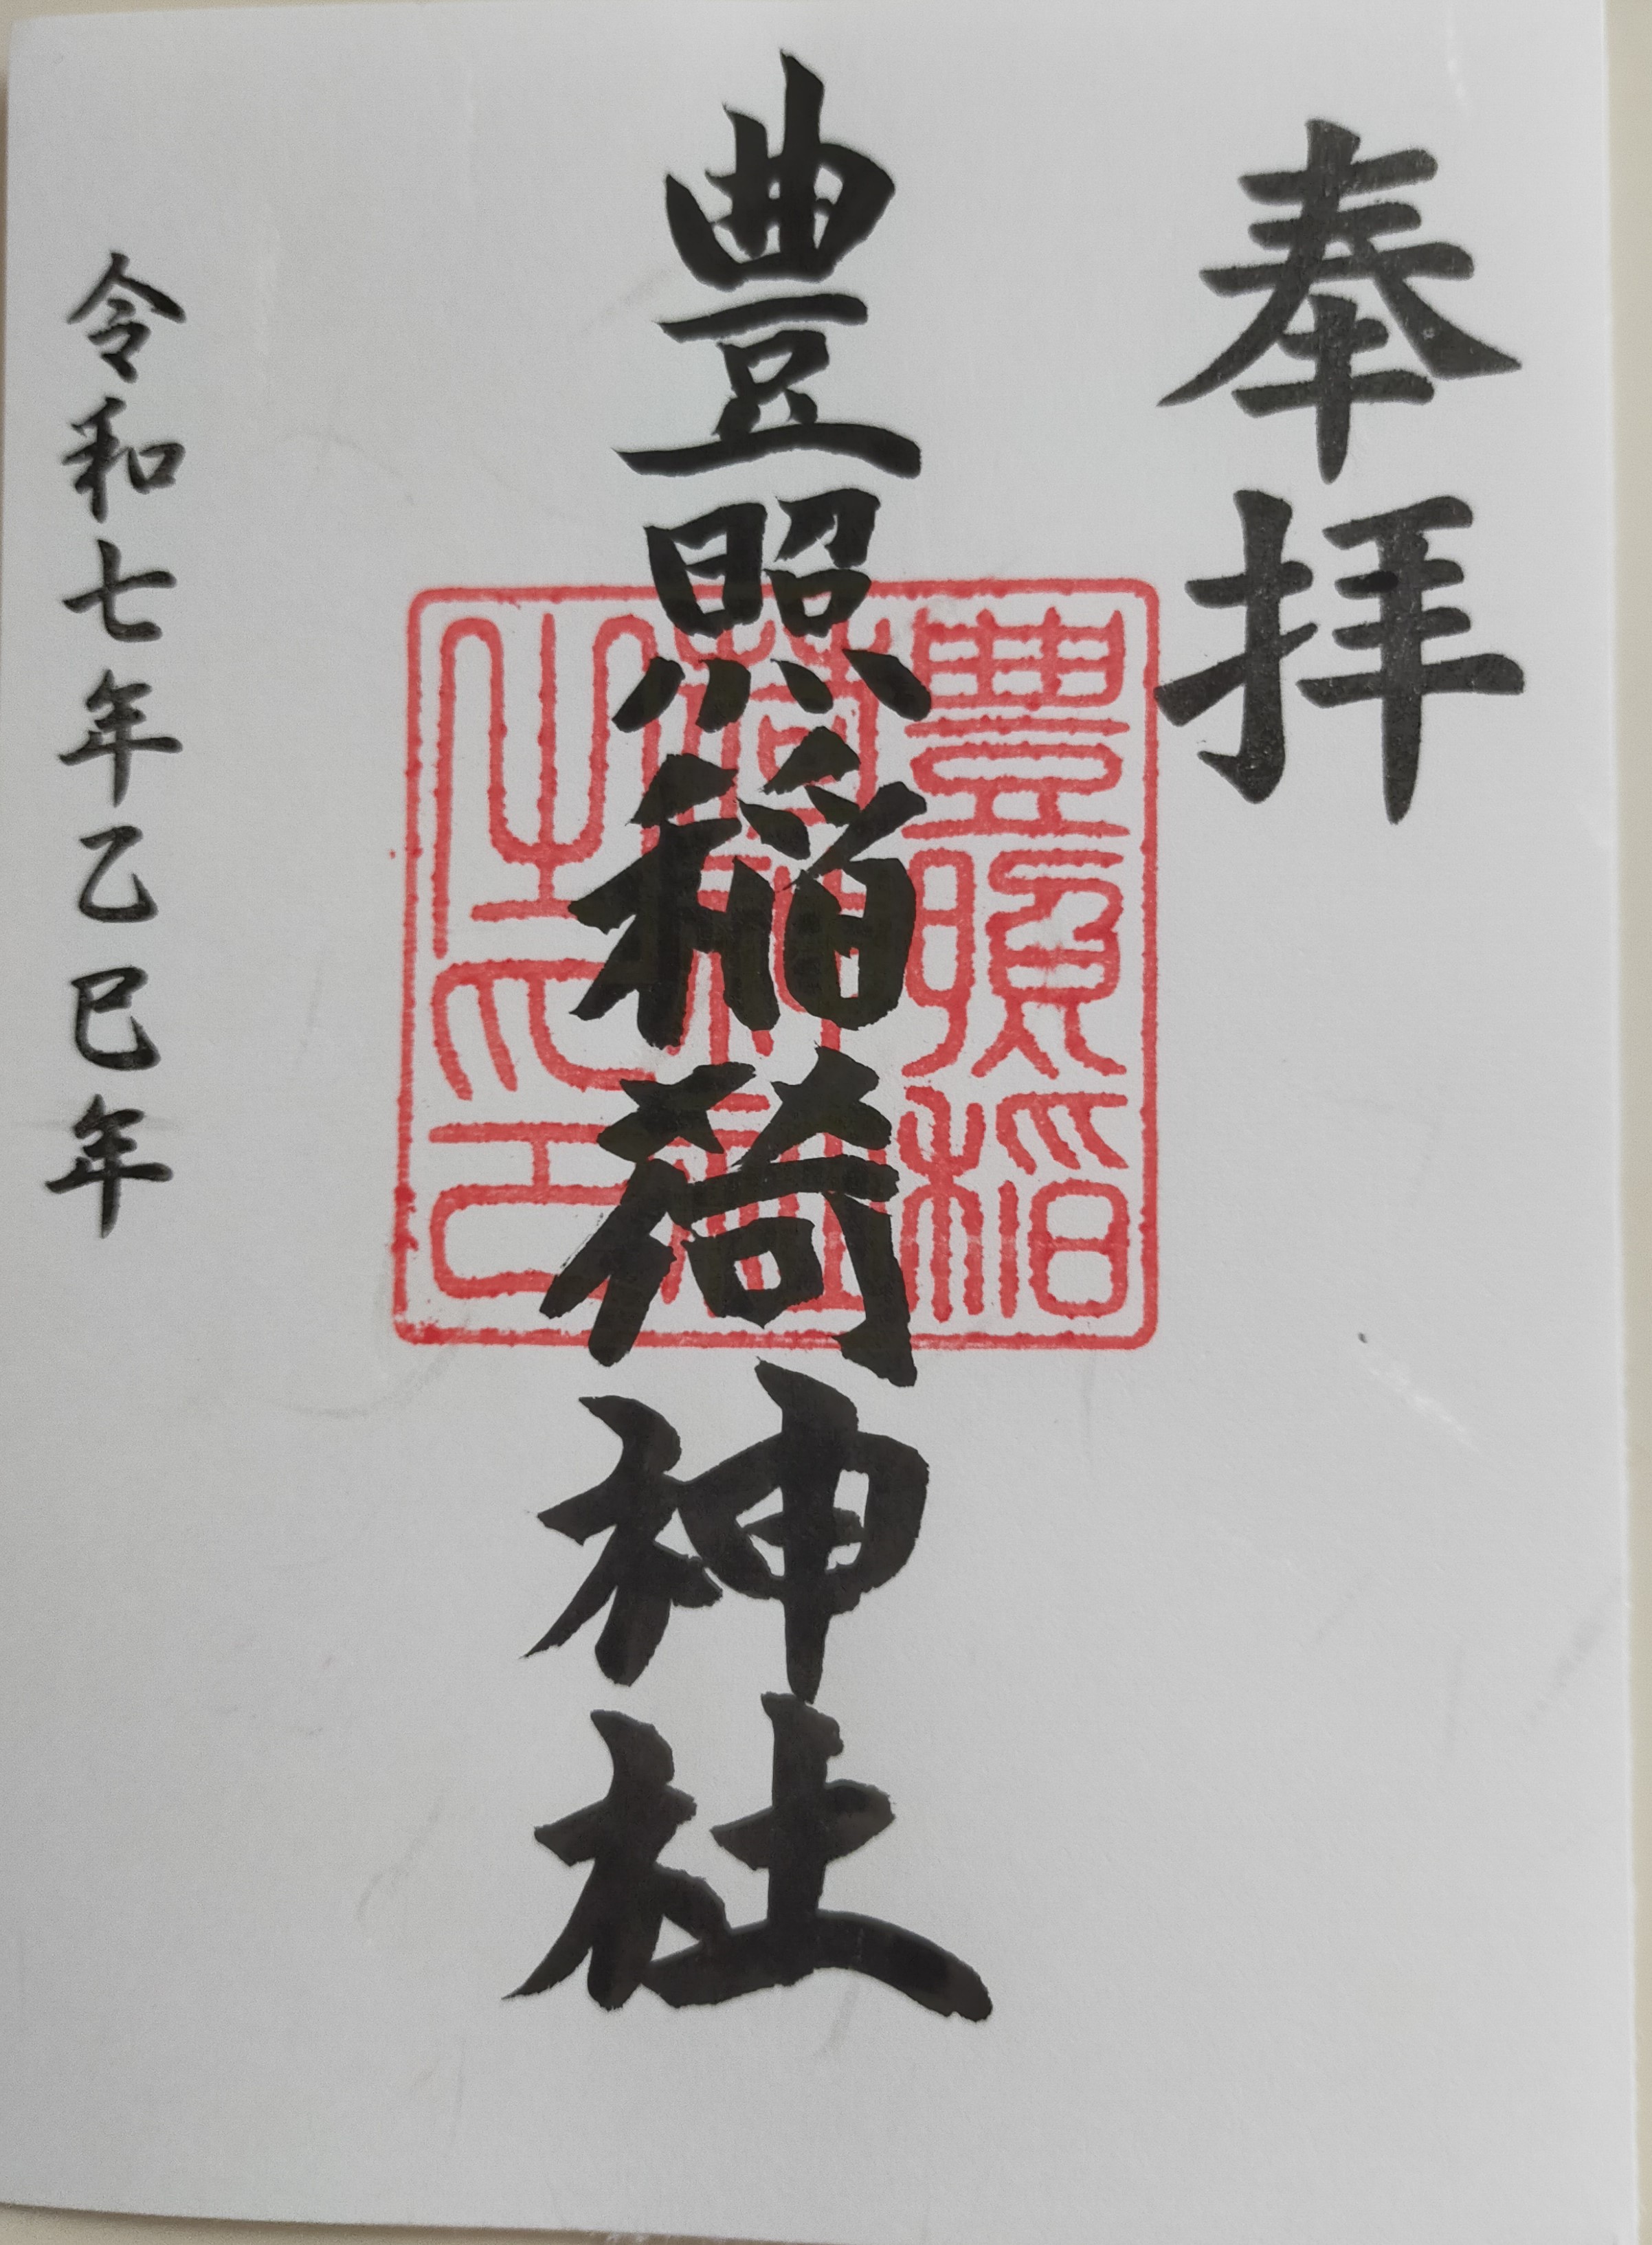 奉拝
豊照稲荷神社
豊照稲
荷神社
之印
令和七年乙巳年